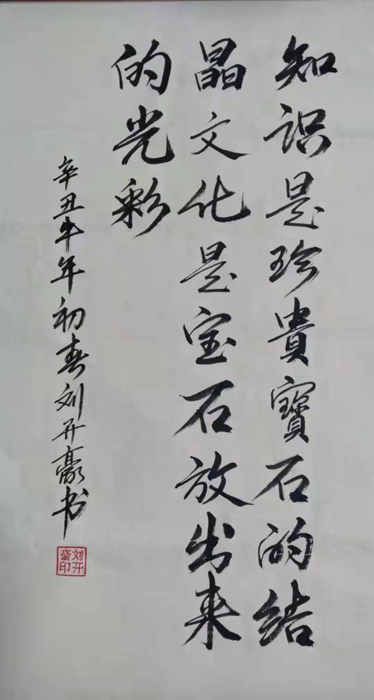 知识是珍貴寶石的结
晶文化是宝石放出来
的光彩
辛丑牛年初春刘开豪书
刘开豪印